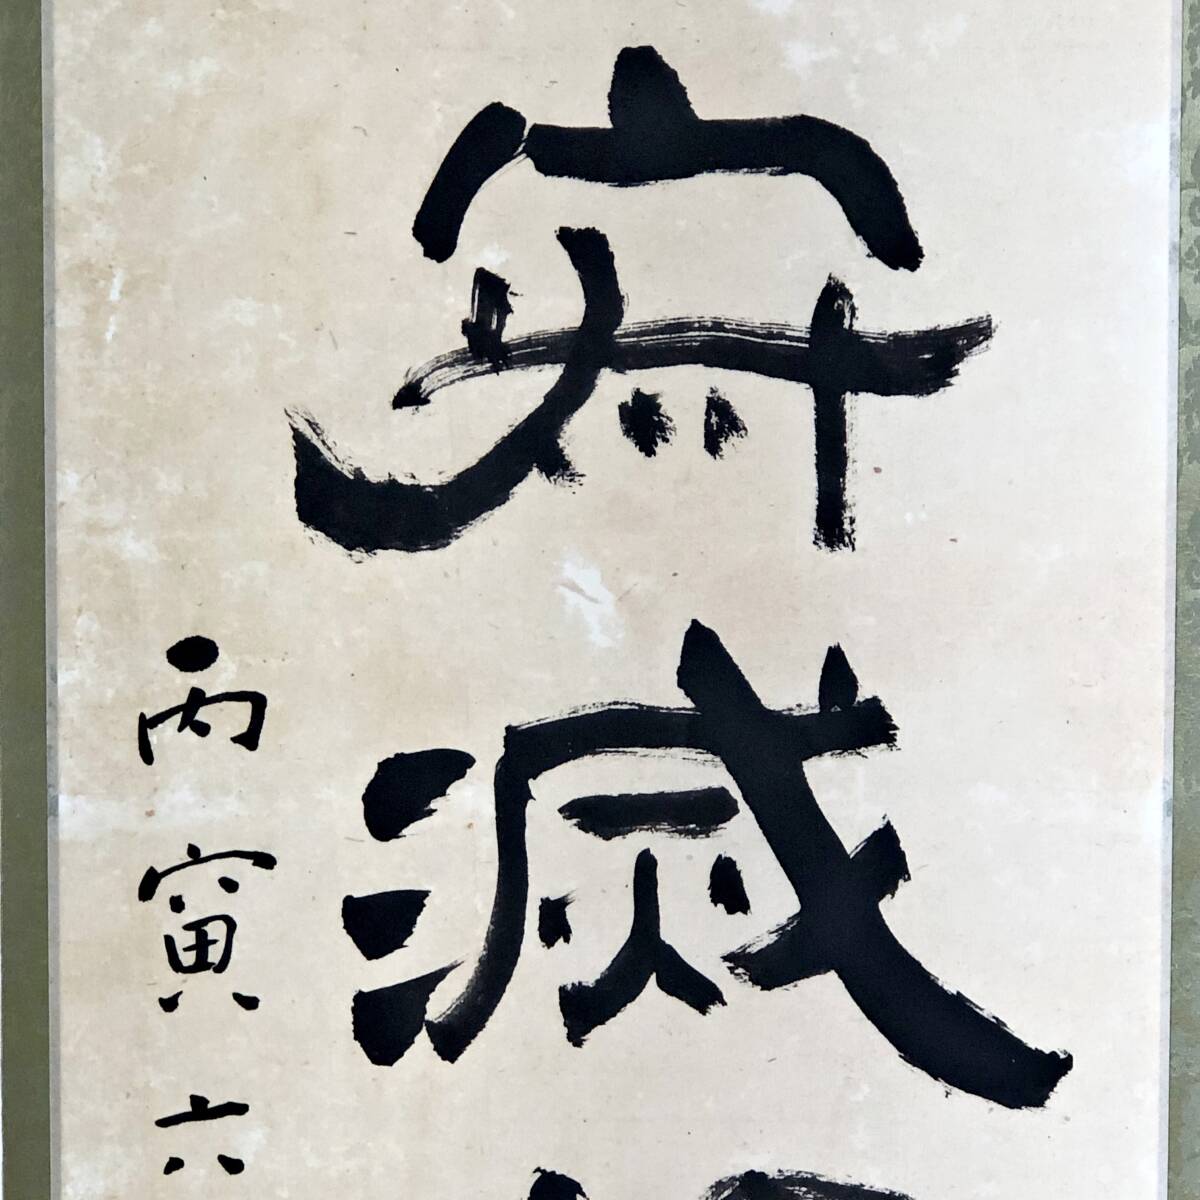 寂滅
丙寅六